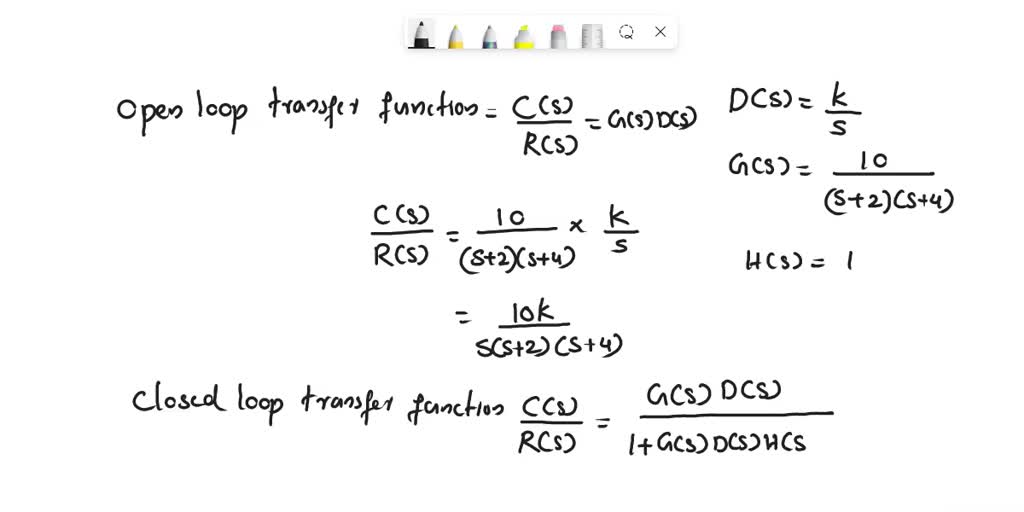 Open loop transfer function = C(s)/R(s) = G(s) D(s)
D(s) = k/s
G(s) = 10/(s+2)(s+4)
H(s) = 1
C(s)/R(s) = 10/(s+2)(s+4) × k/s
= 10k/s(s+2)(s+4)
Closed loop transfer function C(s)/R(s) = G(s) D(s)/1+G(s) D(s) H(s